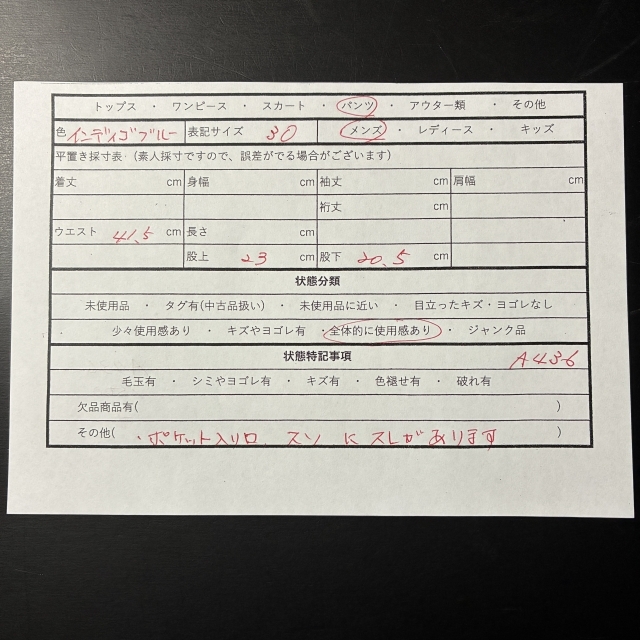 トップス ・ ワンピース ・ スカート ・ パンツ ・ アウター類 ・ その他
色 インディゴブルー 表記サイズ 30 メンズ ・ レディース ・ キッズ
平置き採寸表（素人採寸ですので、誤差がでる場合がございます）
着丈 cm 身幅 cm 袖丈 cm 肩幅 cm
裄丈 cm
ウエスト 41.5 cm 長さ cm
股上 23 cm 股下 20.5 cm
状態分類
未使用品 ・ タグ有(中古品扱い) ・ 未使用品に近い ・ 目立ったキズ・ヨゴレなし
少々使用感あり ・ キズやヨゴレ有 ・ 全体的に使用感あり ・ ジャンク品
状態特記事項 A436
毛玉有 ・ シミやヨゴレ有 ・ キズ有 ・ 色褪せ有 ・ 破れ有
欠品商品有( )
その他( ・ポケット入り口 スソ に スレがあります )